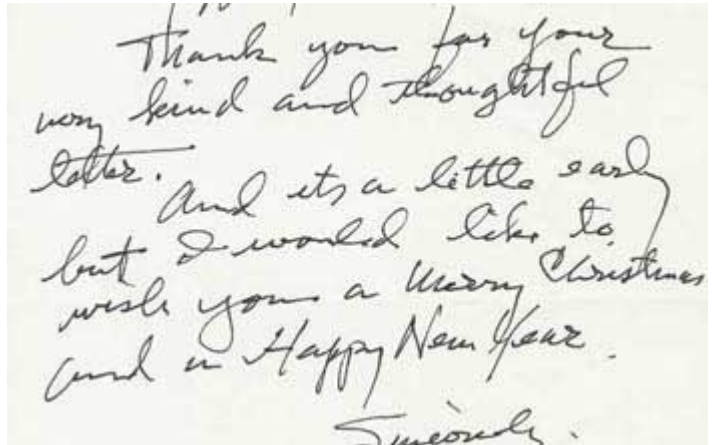 Thank you for your
very kind and thoughtful
letter.
And its a little early
but I would like to
wish you a Merry Christmas
and a Happy New Year.
Sincerely,